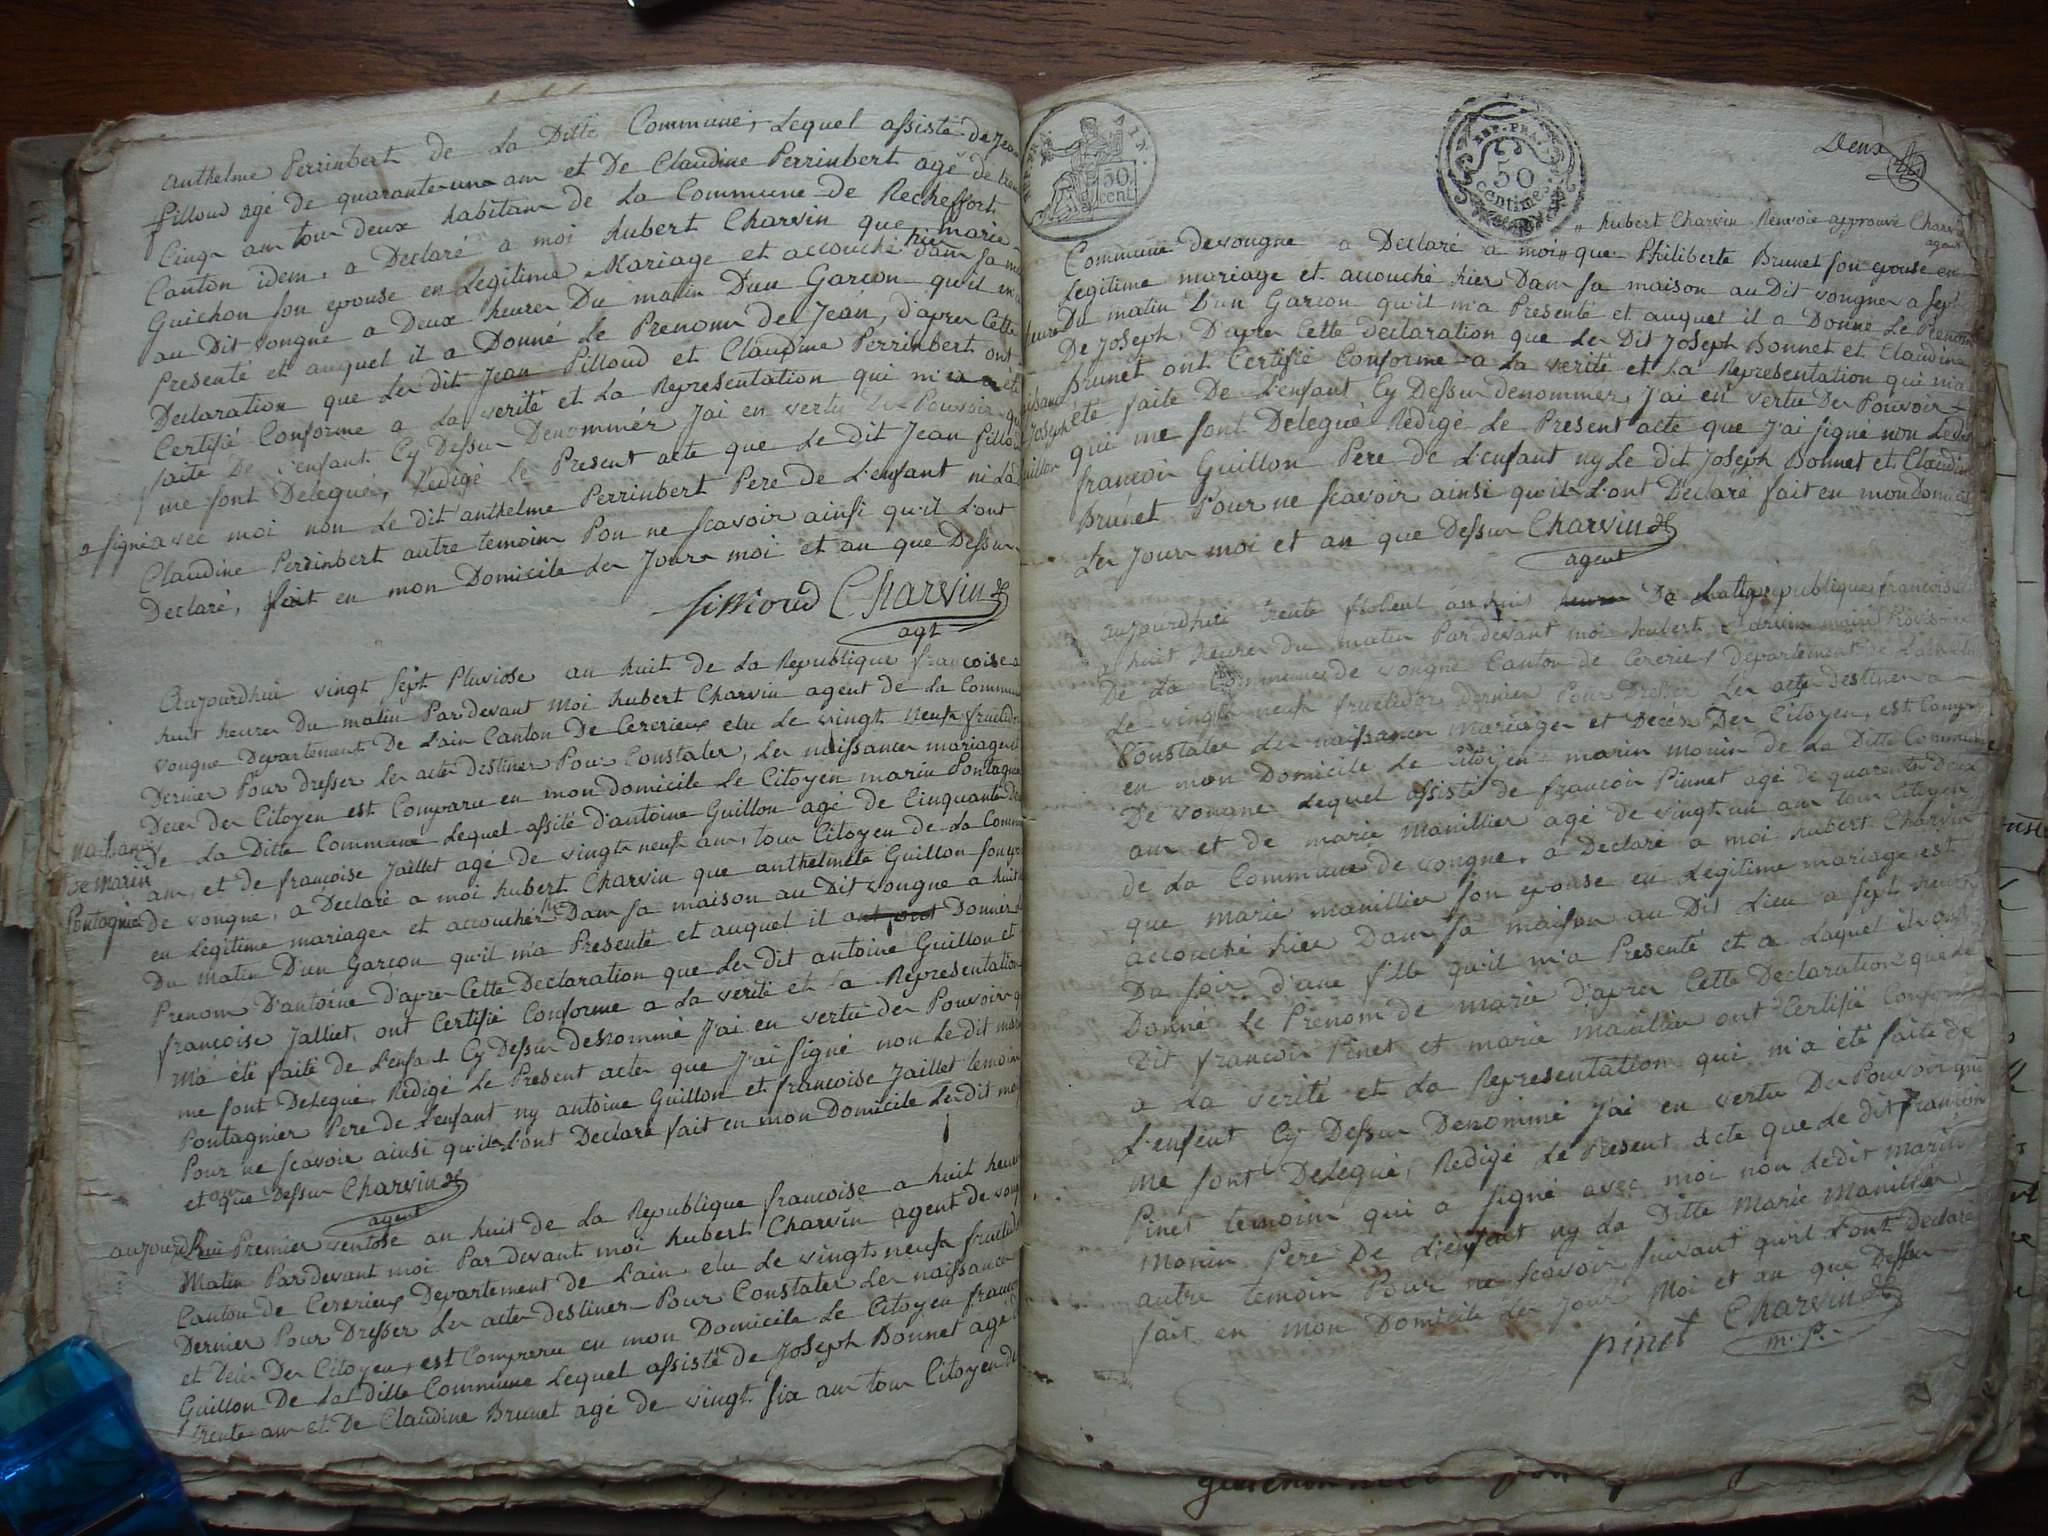 anthelme Perrinbert de La Ditte Commune, Lequel assisté de Jean
filloud agé de quarante une ans et De Claudine Perrinbert agé de trente
Cinq ans tous deux habitans de La Commune de Rocheffort
Canton idem, a Declaré a moi hubert Charvin que marie
Guichon son epouse en Legitime Mariage et accouché hier dans sa
au Dit vongne a Deux heures Du matin D'un Garcon qu'il m'a
Presenté et auquel il a Donné Le Prenom de Jean, d'apres Cette
Declaration que Les dit Jean filloud et Claudine Perrinbert ont
Certifié Conforme a La verité et La Representation qui m'a été
faite De L'enfant Cy Dessus Denommér Jai en vertu des Pouvoirs qui
me sont Delegués, Redigé Le Present acte que Le dit Jean filloud
a signé avec moi non Le dit anthelme Perrinbert Pere de L'enfant ni La
Claudine Perrinbert autre temoins Pou ne scavoir ainsi qu'il L'ont
Declaré, fait en mon Domicile Les Jours moi et an que Dessus
filloud Charvin
agt
Aujourdhui vingt sept Pluviose an huit de La Republique francoise a
huit heures Du matin Pardevant Moi hubert Charvin agent de La Commune
vongne Departement De Lain Canton De Cererieux elu Le vingt neuf fructidor
Dernier Pour dresser Les actes destinés Pour Constater, Les naissances mariages et
Deces des Citoyen est Comparu en mon domicile Le Citoyen marin Pontagnier
naissance
de marin
Pontagnier
De La Ditte Commune Lequel assité d'antoine Guillon agé de Cinquante
ans, et de francoise Jaillet agé de vingt neuf ans, tous Citoyen de La Commune
de vongne, a Declaré a moi hubert Charvin que anthelmete Guillon son
en Legitime mariages et accoucher Dans sa maison au Dit vongne a huit
Du Matin D'un Garcon qu'il m'a Presenté et auquel il a Donner
Prenom D'antoine d'apres Cette Declaration que Les dit antoine Guillon et
francoise Jalliet, ont Certifié Conforme a La verité et La Representation
M'a été faite de L'enfant Cy Dessus desnommé J'ai en vertu des Pouvoirs
me sont Delegué, Redigé Le Present actes que J'ai signé non Le dit marin
Pontagnier Pere de L'enfant ny antoine Guillon et francoise Jaillet temoins
Pour ne scavoir ainsi qu'ils L'ont Declaré fait en mon Domicile Lesdit
et an que Dessus Charvin
agent
aujourdhui Premier ventose an huit de La Republique francoise a huit heures
Matin Pardevant moi Par devant moi hubert Charvin agent de vongne
Canton de Cererieux Departement de Lain, elu Le vingt neuf fructidor
Dernier Pour Dresser Les actes destinés Pour Constater Les naissances
et Des Citoyen, est Comparu en mon Domicile Le Citoyen francois
Guillon De La ditte Commune Lequel assisté de Joseph Bonnet agé
trente ans et De Claudine Brunet agé de vingt six ans tous Citoyen de
REP. FRA.
50 cent.
REP. FRA.
50
centimes
Deux
hubert Charvin Renvoie approuvé Charvin
agent
Commune de vongne a Declaré a moi que Philiberte Brunet son epouse en
Legitime mariage et accouché hier Dans sa maison au Dit vongnes a sept
heures Du matin D'un Garcon qu'il m'a Presenté et auquel il a Donné Le Prenom
De Joseph, D'apres Cette declaration que Les Dit Joseph Bonnet et Claudine
Brunet ont Certifié Conforme a La verité et La Representation qui m'a
naissance
Joseph
Guillon
été faite De L'enfant Cy Dessus denommer, j'ai en vertu Des Pouvoir
qui me sont Delegué Redigé Le Present acte que J'ai signé non Ledit
francois Guillon Pere de L'enfant ny Le dit Joseph Bonnet et Claudine
Brunet Pour ne scavoir ainsi qu'ils L'ont Declaré fait en mon Domicile
Les Jours moi et an que Dessus Charvin
agent
aujourdhui trente floreal an huit De La Republique francoise
a huit heures du matin Par devant moi hubert Charvin
De La Commune de vongne Canton de Cererieux departement de Lain
Le vingt neuf fructidor Dernier Pour Dresser Les acte destinés a
Constater Les naissances Mariages et Deces Des Citoyen, est Comparu
en mon Domicile Le Citoyen marin monin de La Ditte Commune
De vongne Lequel assisté de francois Pinnet agé de quarente Deux
ans et de marie Manillier agé de vingt un ans tous Citoyen
de La Commune de vongne, a Declaré a moi hubert Charvin
que marie manillier son epouse en Legitime mariage est
accouché hier Dans sa maison au Dit Lieu a sept heures
Du soir d'une fille qu'il m'a Presenté et a Laquel il a
Donné Le Prenom de marie D'apres Cette Declaration que Le
Dit francois Pinet et marie manillier ont Certifié Conforme
a La verité et La Representation qui m'a été faite de
L'enfent Cy Dessus Denommé J'ai en vertu Des Pouvoir qui
me sont Delegué, Redigé Le Present Acte que Le dit francois
Pinet temoins qui a signé avec moi non Ledit marin
Monin Pere De L'enfant ny La Ditte Marie Manillier
autre temoin Pour ne scavoir suivant qu'il L'ont Declaré
fait en mon Domicile Les Jour Moi et an que Dessus
pinet Charvin
m. p.